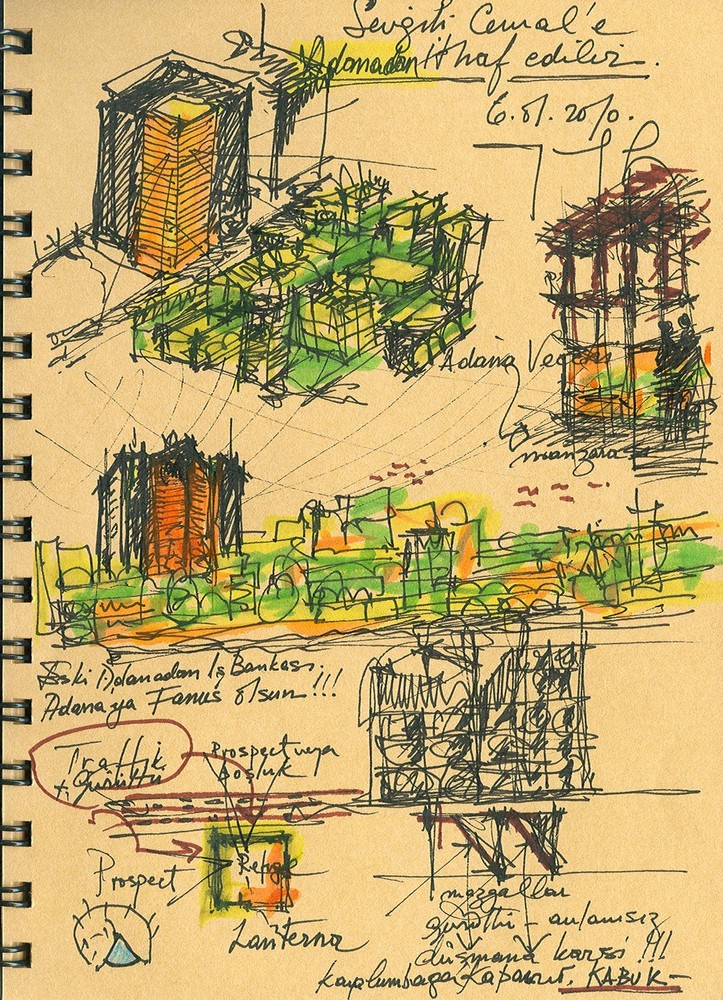 Sevgili Cemal'e
Adanadan ithaf edilir.
6.01.2010.
Adana Vegas
manzara
Eski Adanadan İş Bankası.
Adanaya Fanus olsun!!!
Trafik
+ Gürültü
Prospect veya
Boşluk
Prospect
Refüje
Lanterna
mazgallar
gürültü - anlamsız
düşmana karşı!!!
kaplumbağa kapanır. KABUK-